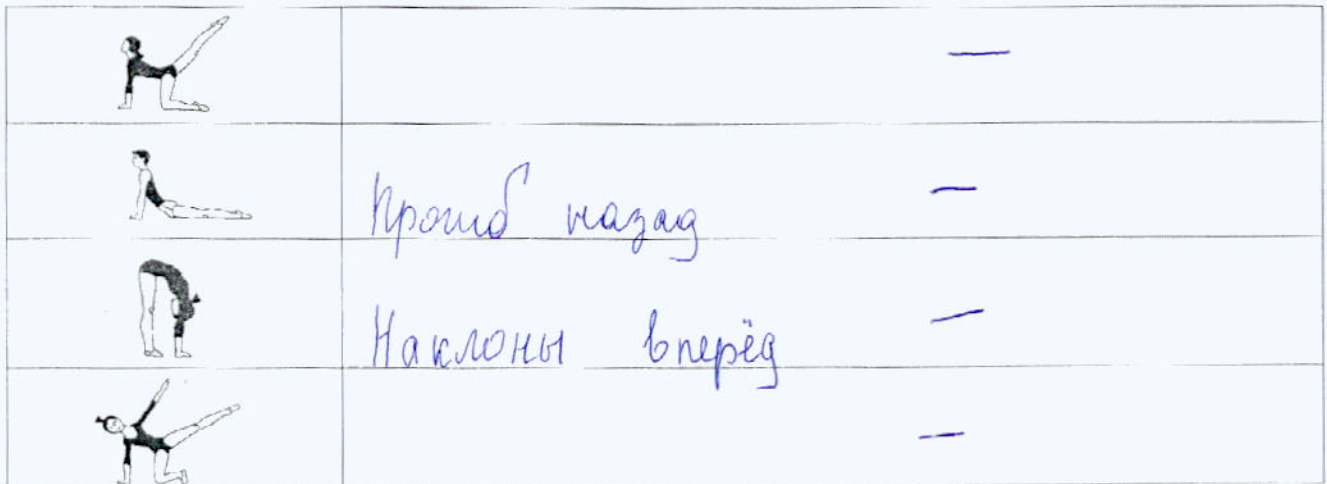 —
Прогиб назад —
Наклоны вперёд —
—